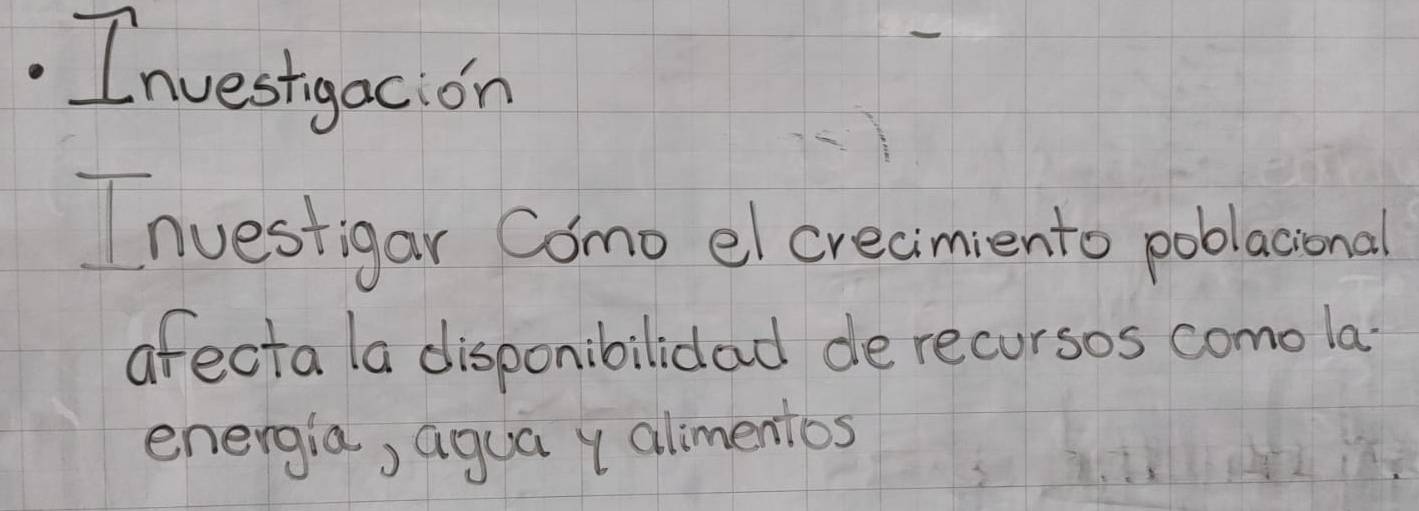 · Investigación
Investigar Cómo el crecimiento poblacional
afecta la disponibilidad de recursos como la
energía, agua y alimentos